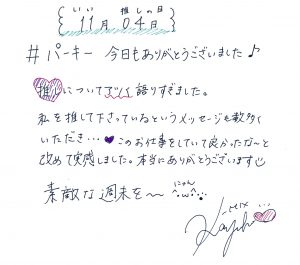 いい 推しの日
11月 04日
#パーキー 今日もありがとうございました♪
推し♡についてアツく語りすぎました。
私を推して下さっているというメッセージも数多く
いただき…♥このお仕事をしていて良かったなーと
改めて実感しました。本当にありがとうございます
素敵な週末を〜 にゃん ^•ω•^